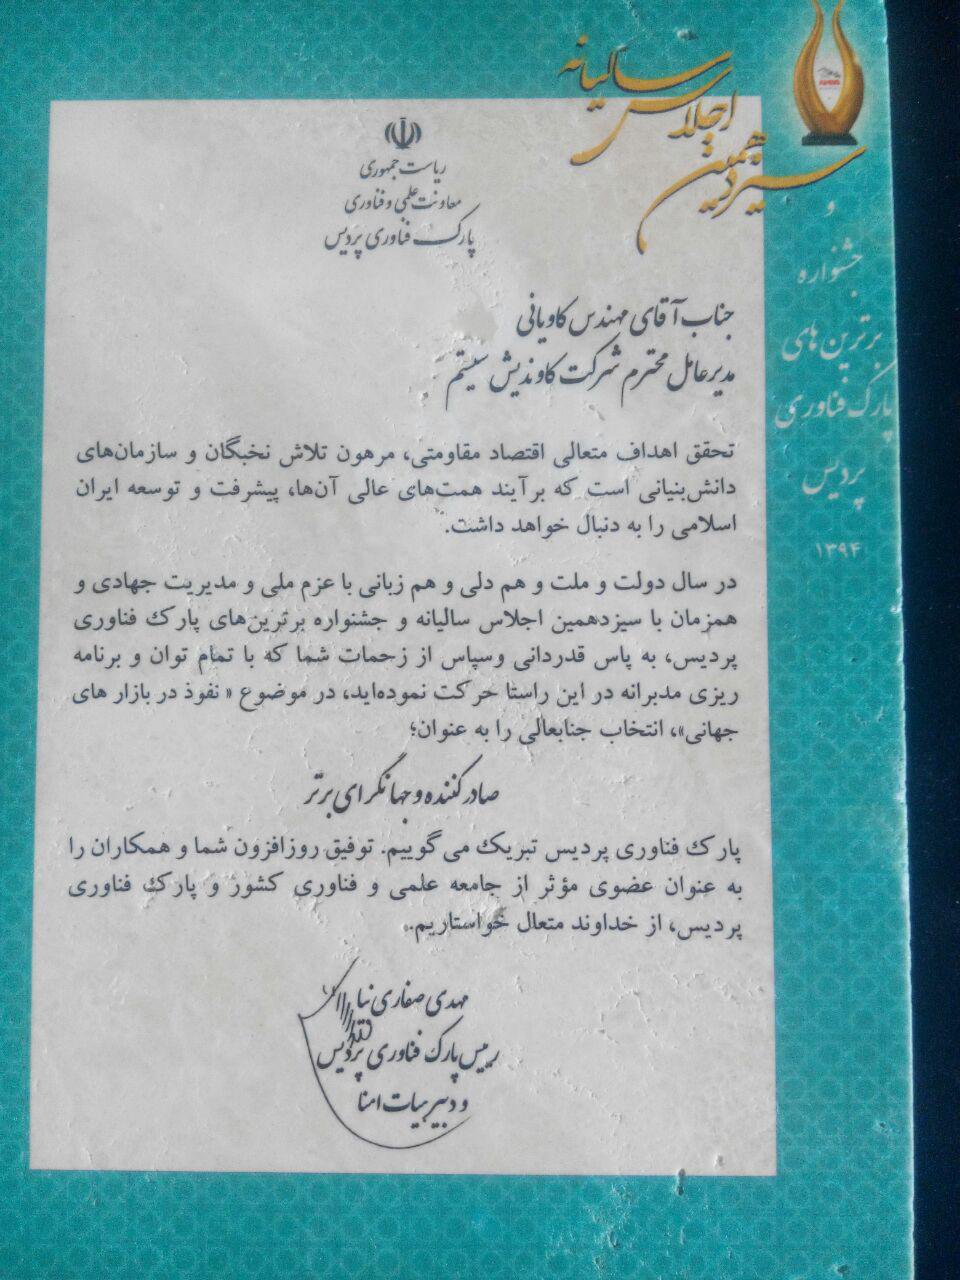 سیزدهمین
اجلاس
سالیانه
و
جشنواره
برترین های
پارک فناوری
پردیس
۱۳۹۴
ریاست جمهوری
معاونت علمی و فناوری
پارک فناوری پردیس
جناب آقای مهندس کاویانی
مدیرعامل محترم شرکت کاوندیش سیستم
تحقق اهداف متعالی اقتصاد مقاومتی، مرهون تلاش نخبگان و سازمان‌های
دانش‌بنیانی است که برآیند همت‌های عالی آن‌ها، پیشرفت و توسعه ایران
اسلامی را به دنبال خواهد داشت.
در سال دولت و ملت و هم دلی و هم زبانی با عزم ملی و مدیریت جهادی و
همزمان با سیزدهمین اجلاس سالیانه و جشنواره برترین‌های پارک فناوری
پردیس، به پاس قدردانی وسپاس از زحمات شما که با تمام توان و برنامه
ریزی مدبرانه در این راستا حرکت نموده‌اید، در موضوع « نفوذ در بازار های
جهانی»، انتخاب جنابعالی را به عنوان؛
صادرکننده و جهانگرای برتر
پارک فناوری پردیس تبریک می گوییم. توفیق روزافزون شما و همکاران را
به عنوان عضوی مؤثر از جامعه علمی و فناوری کشور و پارک فناوری
پردیس، از خداوند متعال خواستاریم.
مهدی صفاری نیا
رییس پارک فناوری پردیس
و دبیر هیات امنا